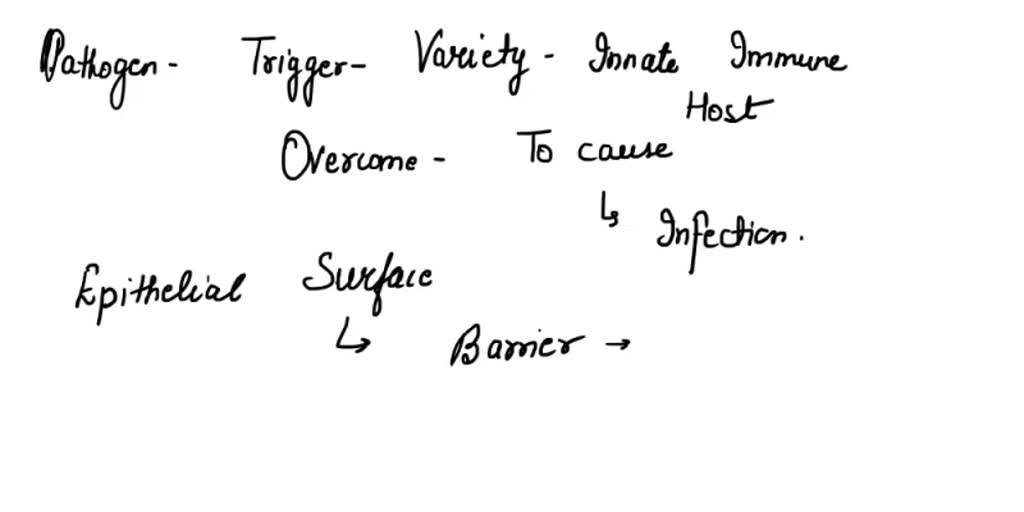 Pathogen - Trigger - Variety - Innate Immune
Host
Overcome - To cause
↳ Infection.
Epithelial Surface
↳ Barrier →